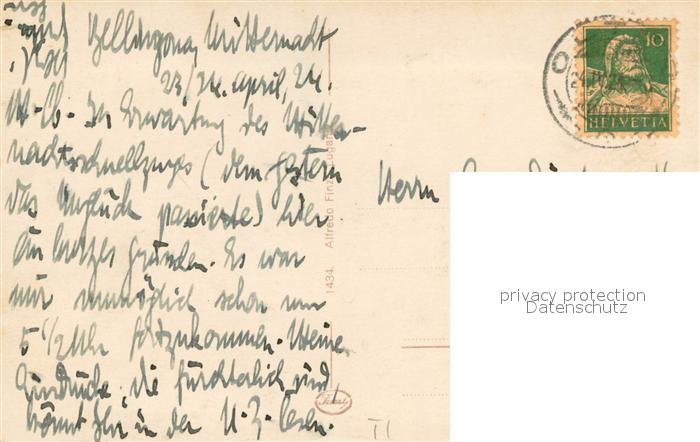 Bellinzona, Mitternacht
23/24. April, 24.
In Erwartung des Mitter-
nachtschnellzuges (dem gestern
das Unglück passierte) hier
ein kurzes Grüssen. Es war
mir unmöglich schon um
5 1/2 Uhr fortzukommen. Meine
Eindrücke, die fürchterlich sind,
könnt Ihr in der N. Z. lesen.
Herrn
10
HELVETIA
1434. Alfredo Finzi, Lugano
privacy protection
Datenschutz